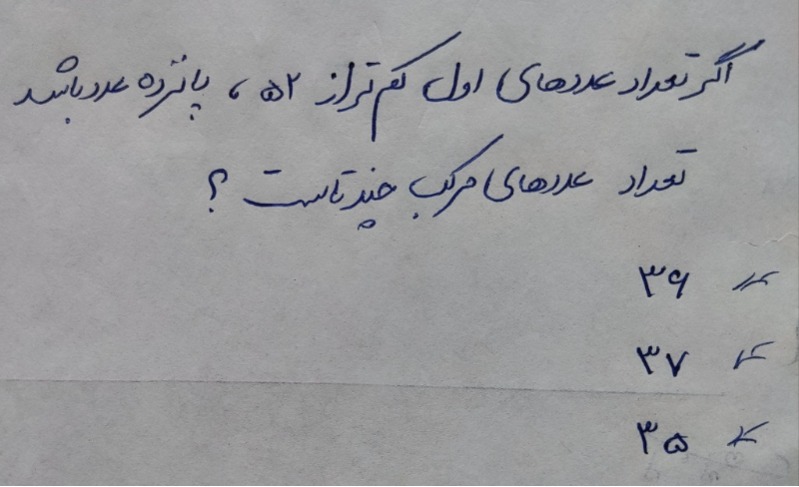 اگر تعداد عددهای اول کم‌تر از ۵۲ ، پانزده عدد باشد
تعداد عددهای مرکب چند تاست ؟
۳۶
۳۷
۳۵